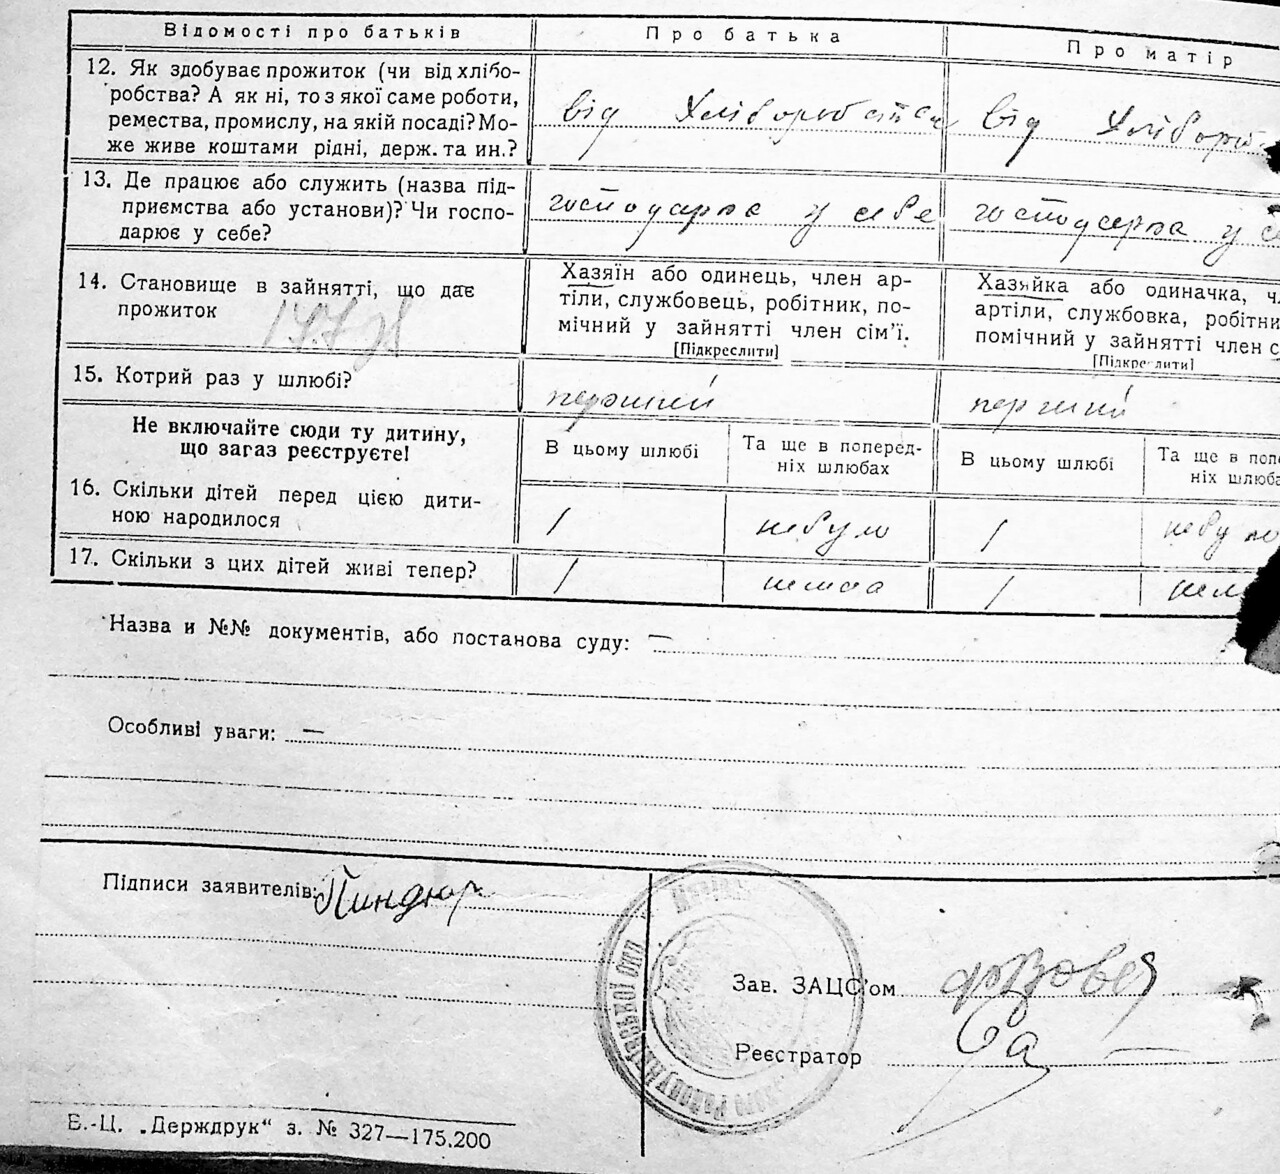 Відомості про батьків
Про батька
Про матір
12. Як здобуває прожиток (чи від хлібо-
робства? А як ні, то з якої саме роботи,
ремества, промислу, на якій посаді? Мо-
же живе коштами рідні, держ. та ин.?
від Хліборобства
від Хлібороб
13. Де працює або служить (назва під-
приємства або установи)? Чи госпо-
дарює у себе?
господарює у себе
господарює у се
14. Становище в зайнятті, що дає
прожиток
Хазяїн або одинець, член ар-
тіли, службовець, робітник, по-
мічний у зайнятті член сім'ї.
[Підкреслити]
Хазяйка або одиначка, чл
артіли, службовка, робітни
помічний у зайнятті член с
[Підкреслити]
15. Котрий раз у шлюбі?
перший
перший
Не включайте сюди ту дитину,
що загаз реєструєте!
В цьому шлюбі
Та ще в поперед-
ніх шлюбах
В цьому шлюбі
Та ще в попе
ніх шлюба
16. Скільки дітей перед цією дити-
ною народилося
1
небуло
1
небуло
17. Скільки з цих дітей живі тепер?
1
немає
1
нем
Назва и №№ документів, або постанова суду: —
Особливі уваги: —
Підписи заявителів: Пиндюр
Зав. ЗАЦС'ом
Реєстратор
В.-Ц. „Держдрук“ з. № 327—175.200